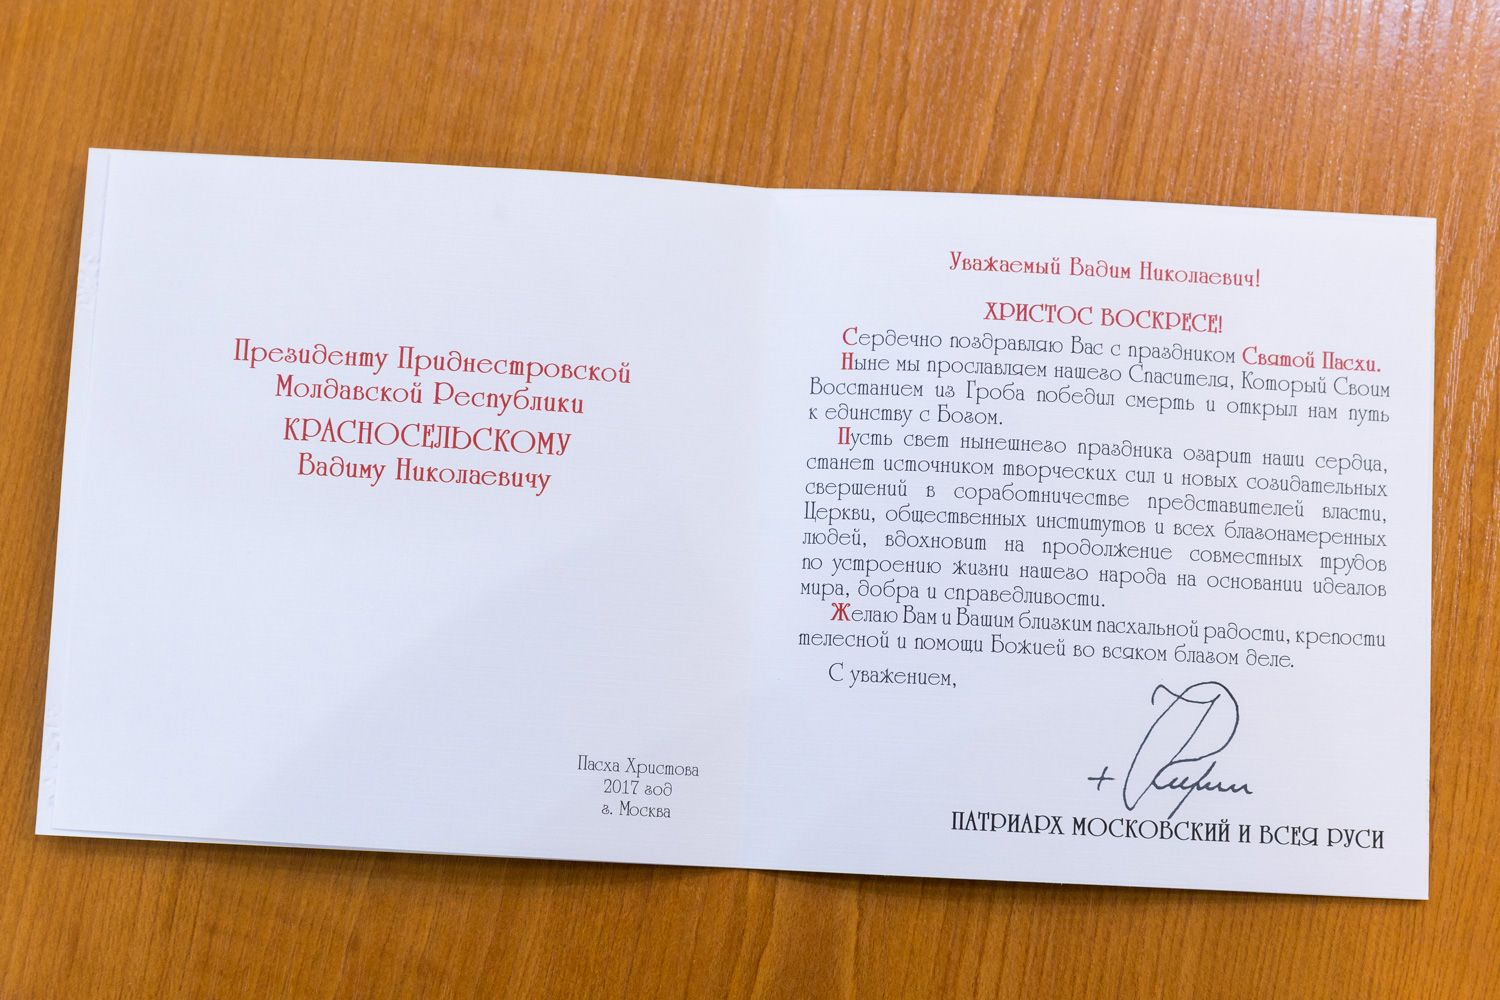 Президенту Приднестровской
Молдавской Республики
КРАСНОСЕЛЬСКОМУ
Вадиму Николаевичу
Пасха Христова
2017 год
г. Москва
Уважаемый Вадим Николаевич!
ХРИСТОС ВОСКРЕСЕ!
Сердечно поздравляю Вас с праздником Святой Пасхи.
Ныне мы прославляем нашего Спасителя, Который Своим
Восстанием из Гроба победил смерть и открыл нам путь
к единству с Богом.
Пусть свет нынешнего праздника озарит наши сердца,
станет источником творческих сил и новых созидательных
свершений в соработничестве представителей власти,
Церкви, общественных институтов и всех благонамеренных
людей, вдохновит на продолжение совместных трудов
по устроению жизни нашего народа на основании идеалов
мира, добра и справедливости.
Желаю Вам и Вашим близким пасхальной радости, крепости
телесной и помощи Божией во всяком благом деле.
С уважением,
+ Кирилл
ПАТРИАРХ МОСКОВСКИЙ И ВСЕЯ РУСИ